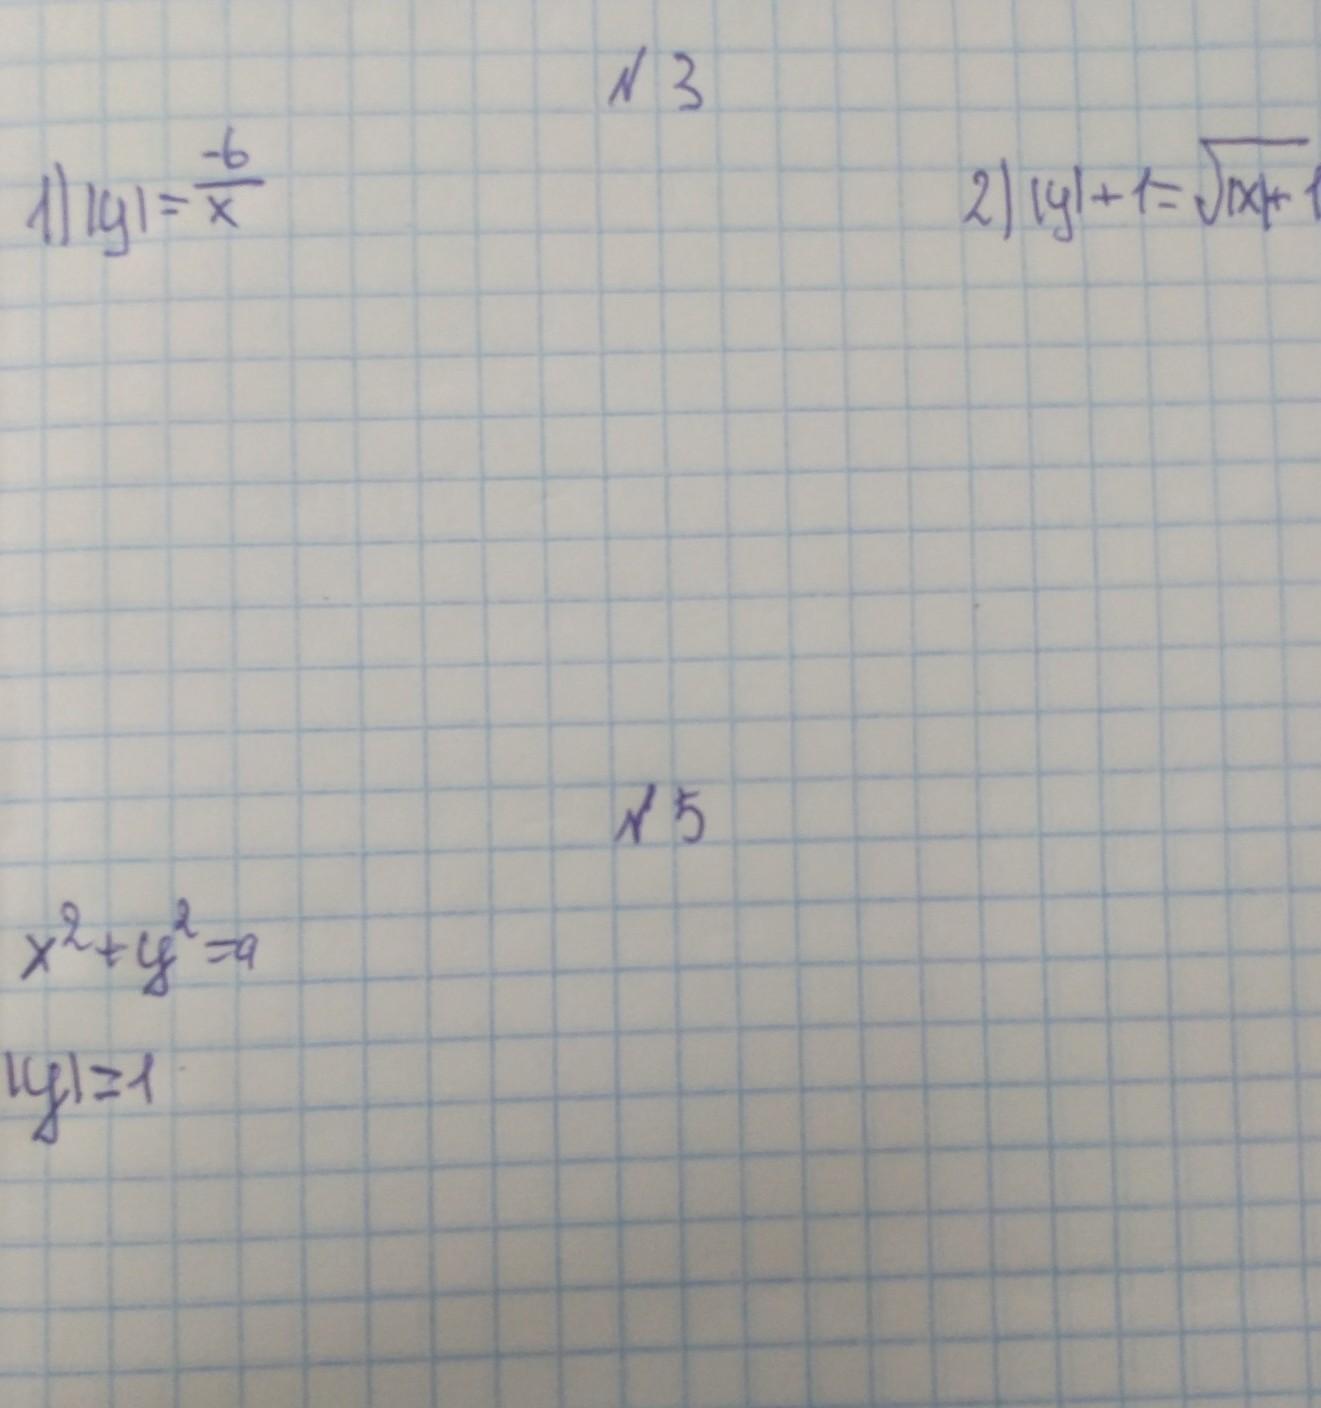 № 3
1) |y| = -6/x 2) |y| + 1 = √|x| + 1
№ 5
x² + y² = 9
|y| ≥ 1